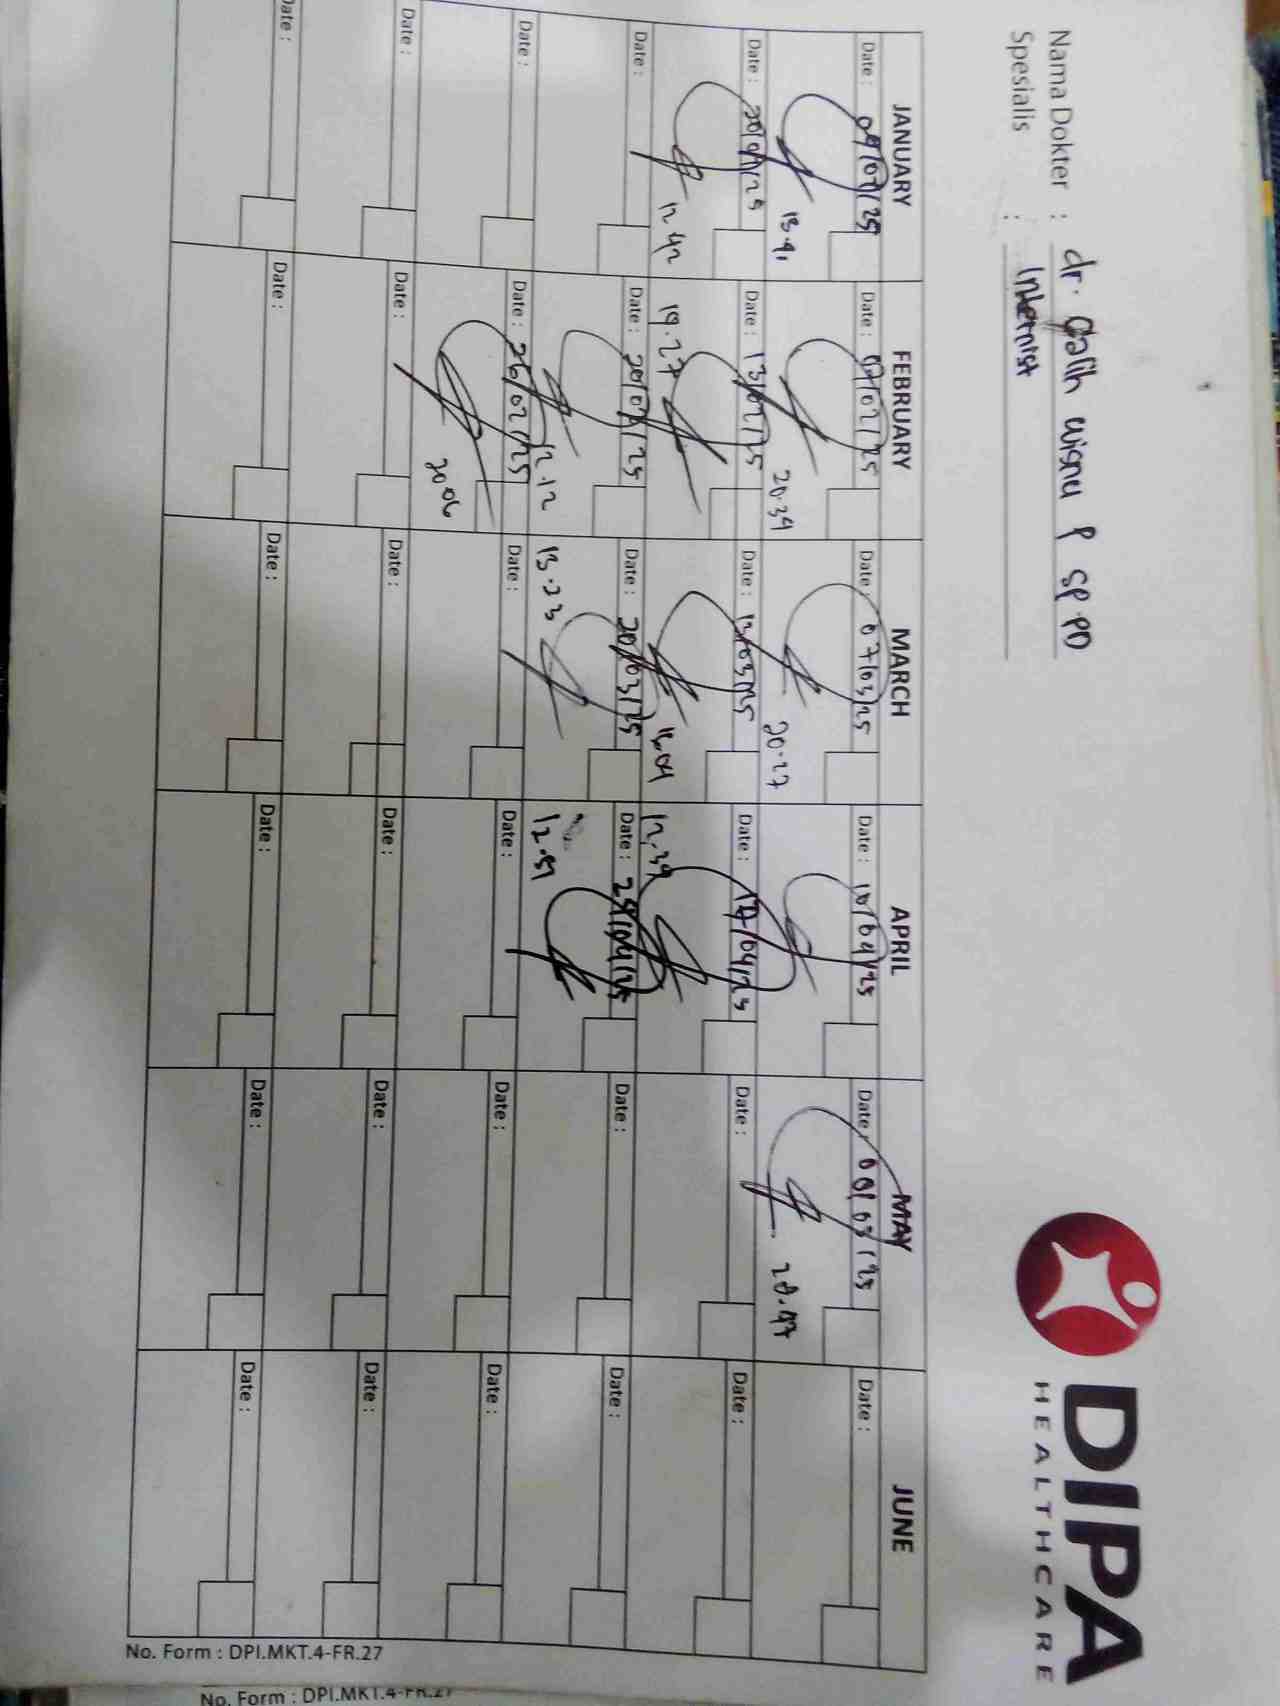 DIPA
HEALTHCARE
Nama Dokter : dr. Galih wisnu P Sp.PD
Spesialis : Internist
JANUARY FEBRUARY MARCH APRIL MAY JUNE
Date : Date : 07/02/25 Date : 07/03/25 Date : 10/04/25 Date : Date :
13.41 20.39 20.27
Date : 20/01/25 Date : 13/02/25 Date : 13/03/25 Date : 17/04/25 Date : Date :
12.42 19.27 12.39
Date : Date : 20/02/25 Date : 20/03/25 Date : Date : Date :
12.12 13.23 12.51
Date : Date : 26/02/25 Date : Date : Date : Date :
20.06
Date : Date : Date : Date : Date : Date :
Date : Date : Date : Date : Date : Date :
No. Form : DPI.MKT.4-FR.27
No. Form : DPI.MKT.4-FR.27